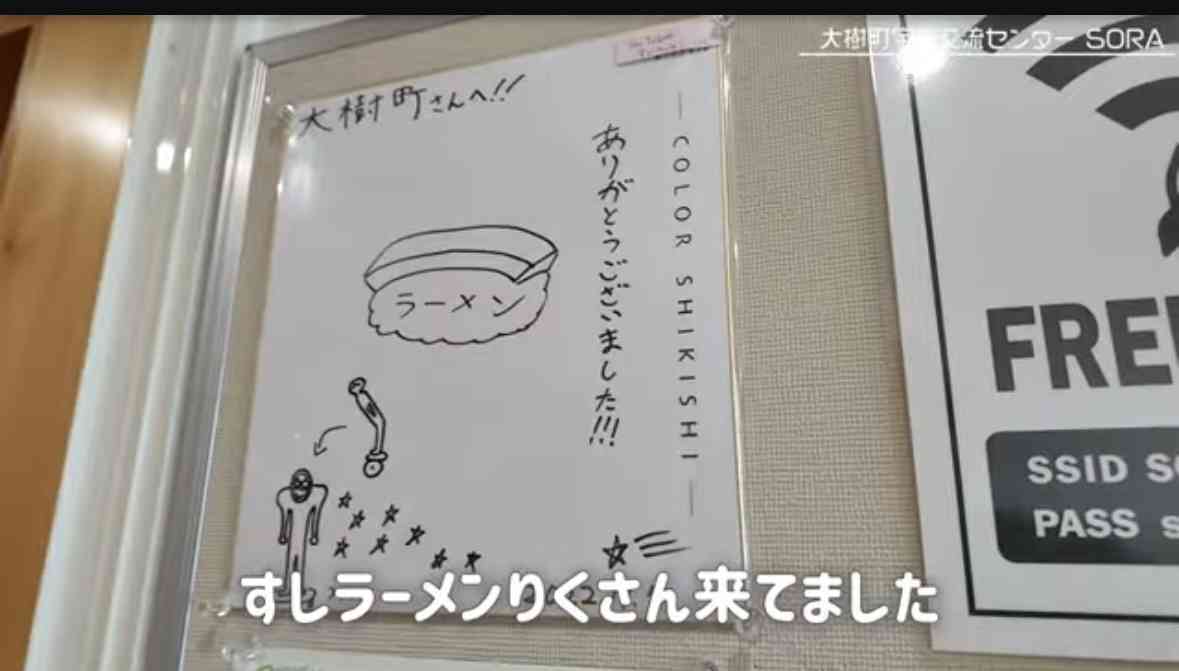 大樹町宇宙交流センター SORA
大樹町さんへ!!
ありがとうございました!!!
COLOR SHIKISHI
ラーメン
FREE
SSID
PASS
すしラーメンりくさん来てました